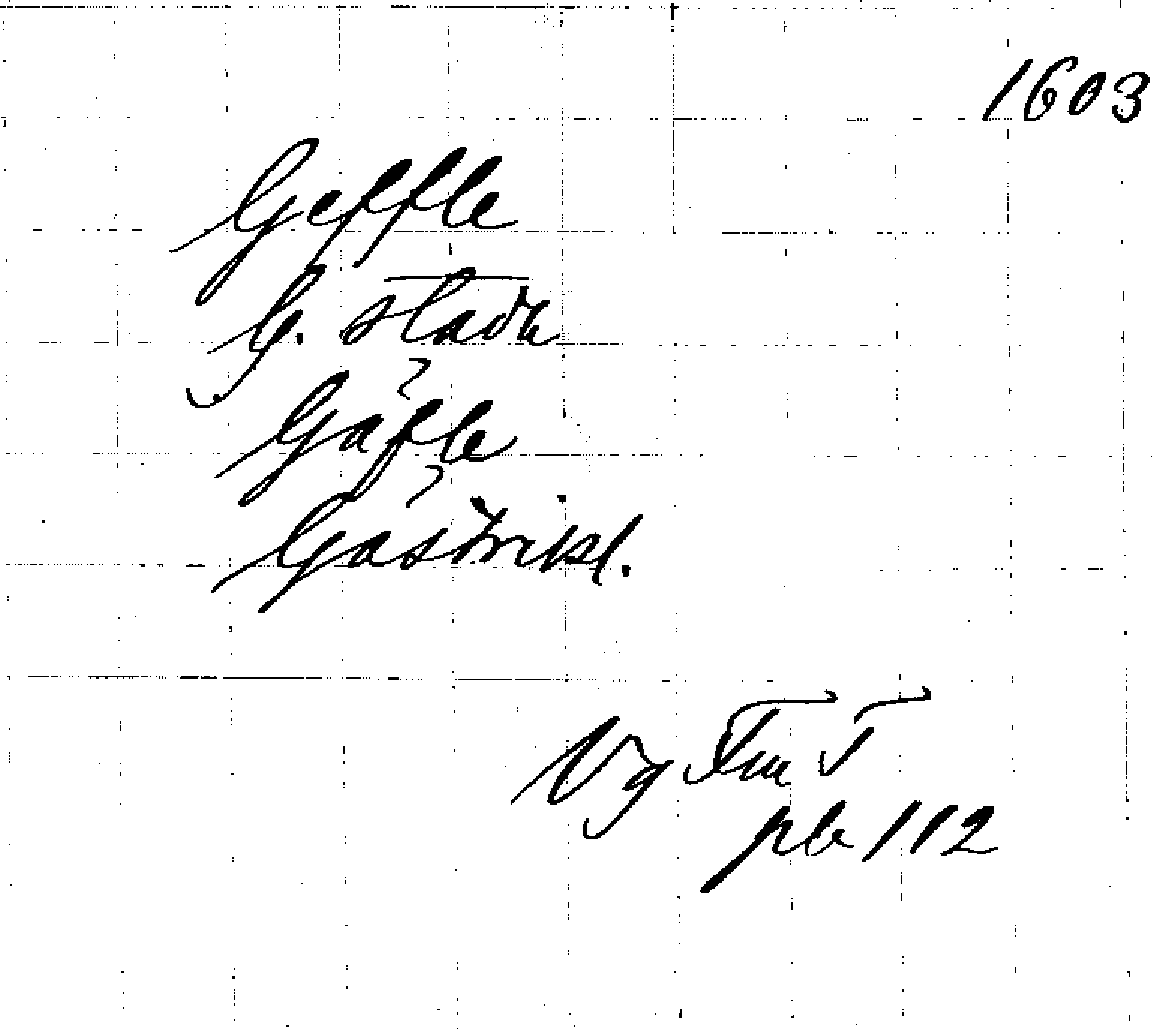 1603
Geffle
G. stadh
Gäfle
Gästrikl.
Vg Fm T
pb 112